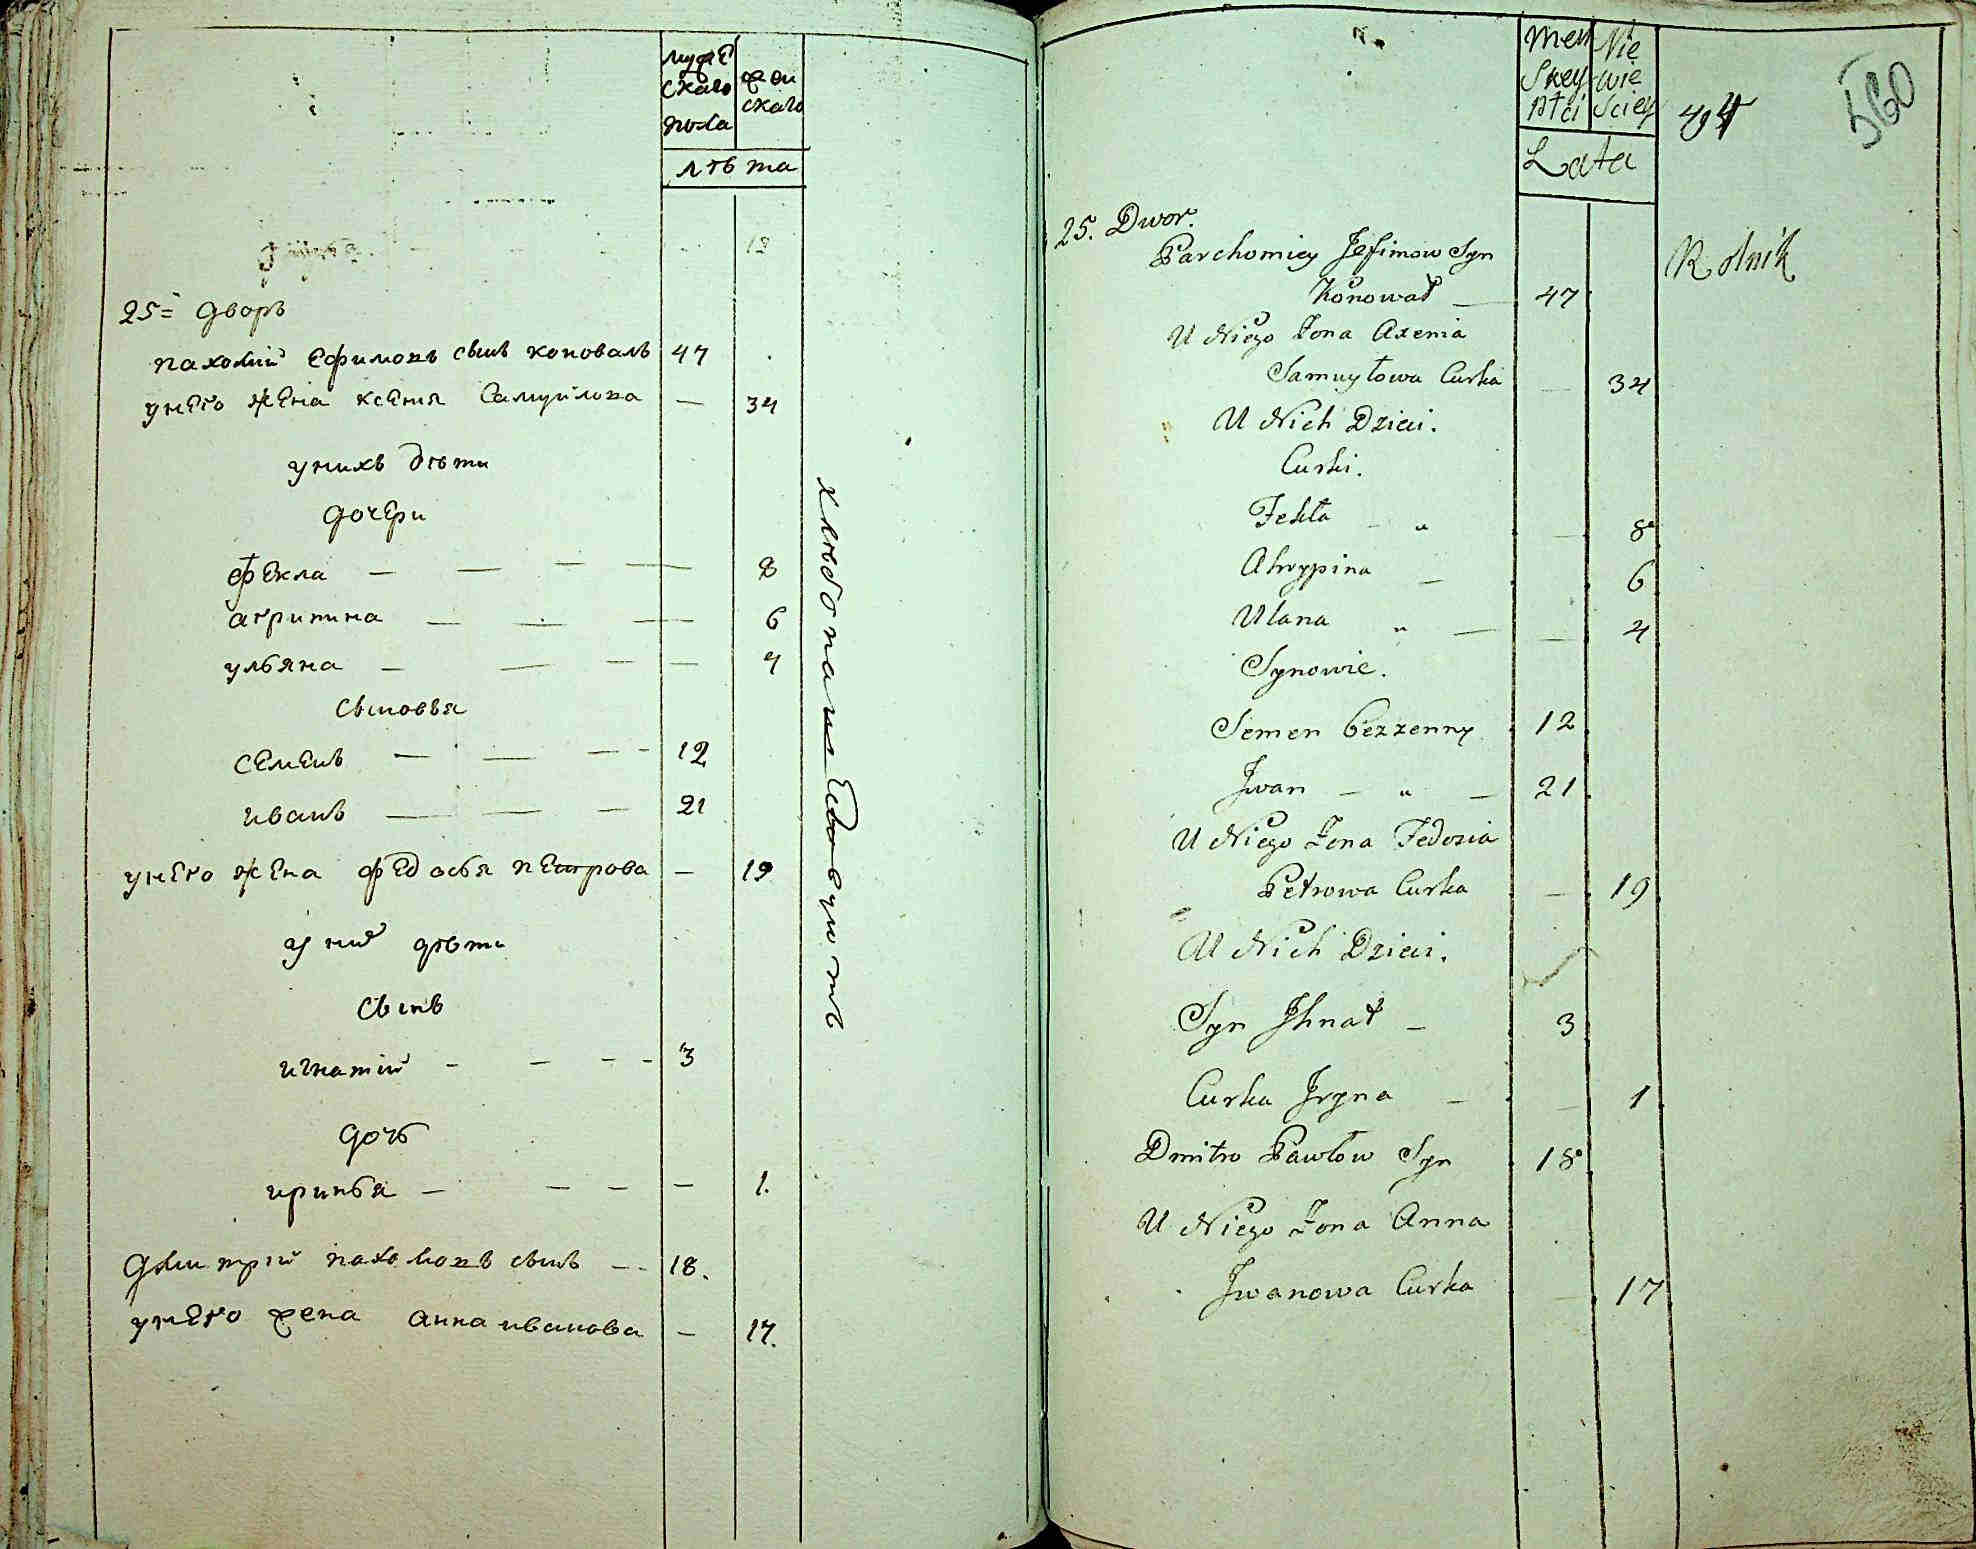 мужескаго пола
женскаго
лѣта
25 дворъ
пахомій Ефимовъ сынъ коновалъ 47
унего жена ксения Самуйлова — 34
унихъ дѣти
дочери
фекла — — — — 8
агрипина — — — 6
ульяна — — — — 4
сыновья
семенъ — — — 12
иванъ — — — 21
унего жена федосья петрова — 19
у них дѣти
сынъ
игнатій - - - - 3
дочь
иринья — — — — 1.
дмитрій пахомовъ сынъ — - 18.
унего жена анна иванова — 17.
хлебопашествуютъ
Men
Skey
Płci
Nie
wie
Sciey
Lata
494
560
25. Dwor.
Parchomiey Jefimow Syn
Konował — 47
Rolnik
U Niego Zona Axenia
Samuyłowa Curka — 34
U Nich Dzieci.
Curki.
Fekła - " — 8
Ahrypina — 6
Ulana " — — 4
Synowie.
Semen bezzenny 12
Jwan — " — 21
U Niego Zona Fedosia
Petrowa Curka — 19
U Nich Dzieci.
Syn Jhnat — 3
Curka Jryna — — 1
Dmitro Pawłow Syn 18
U Niego Zona Anna
Jwanowa Curka — 17